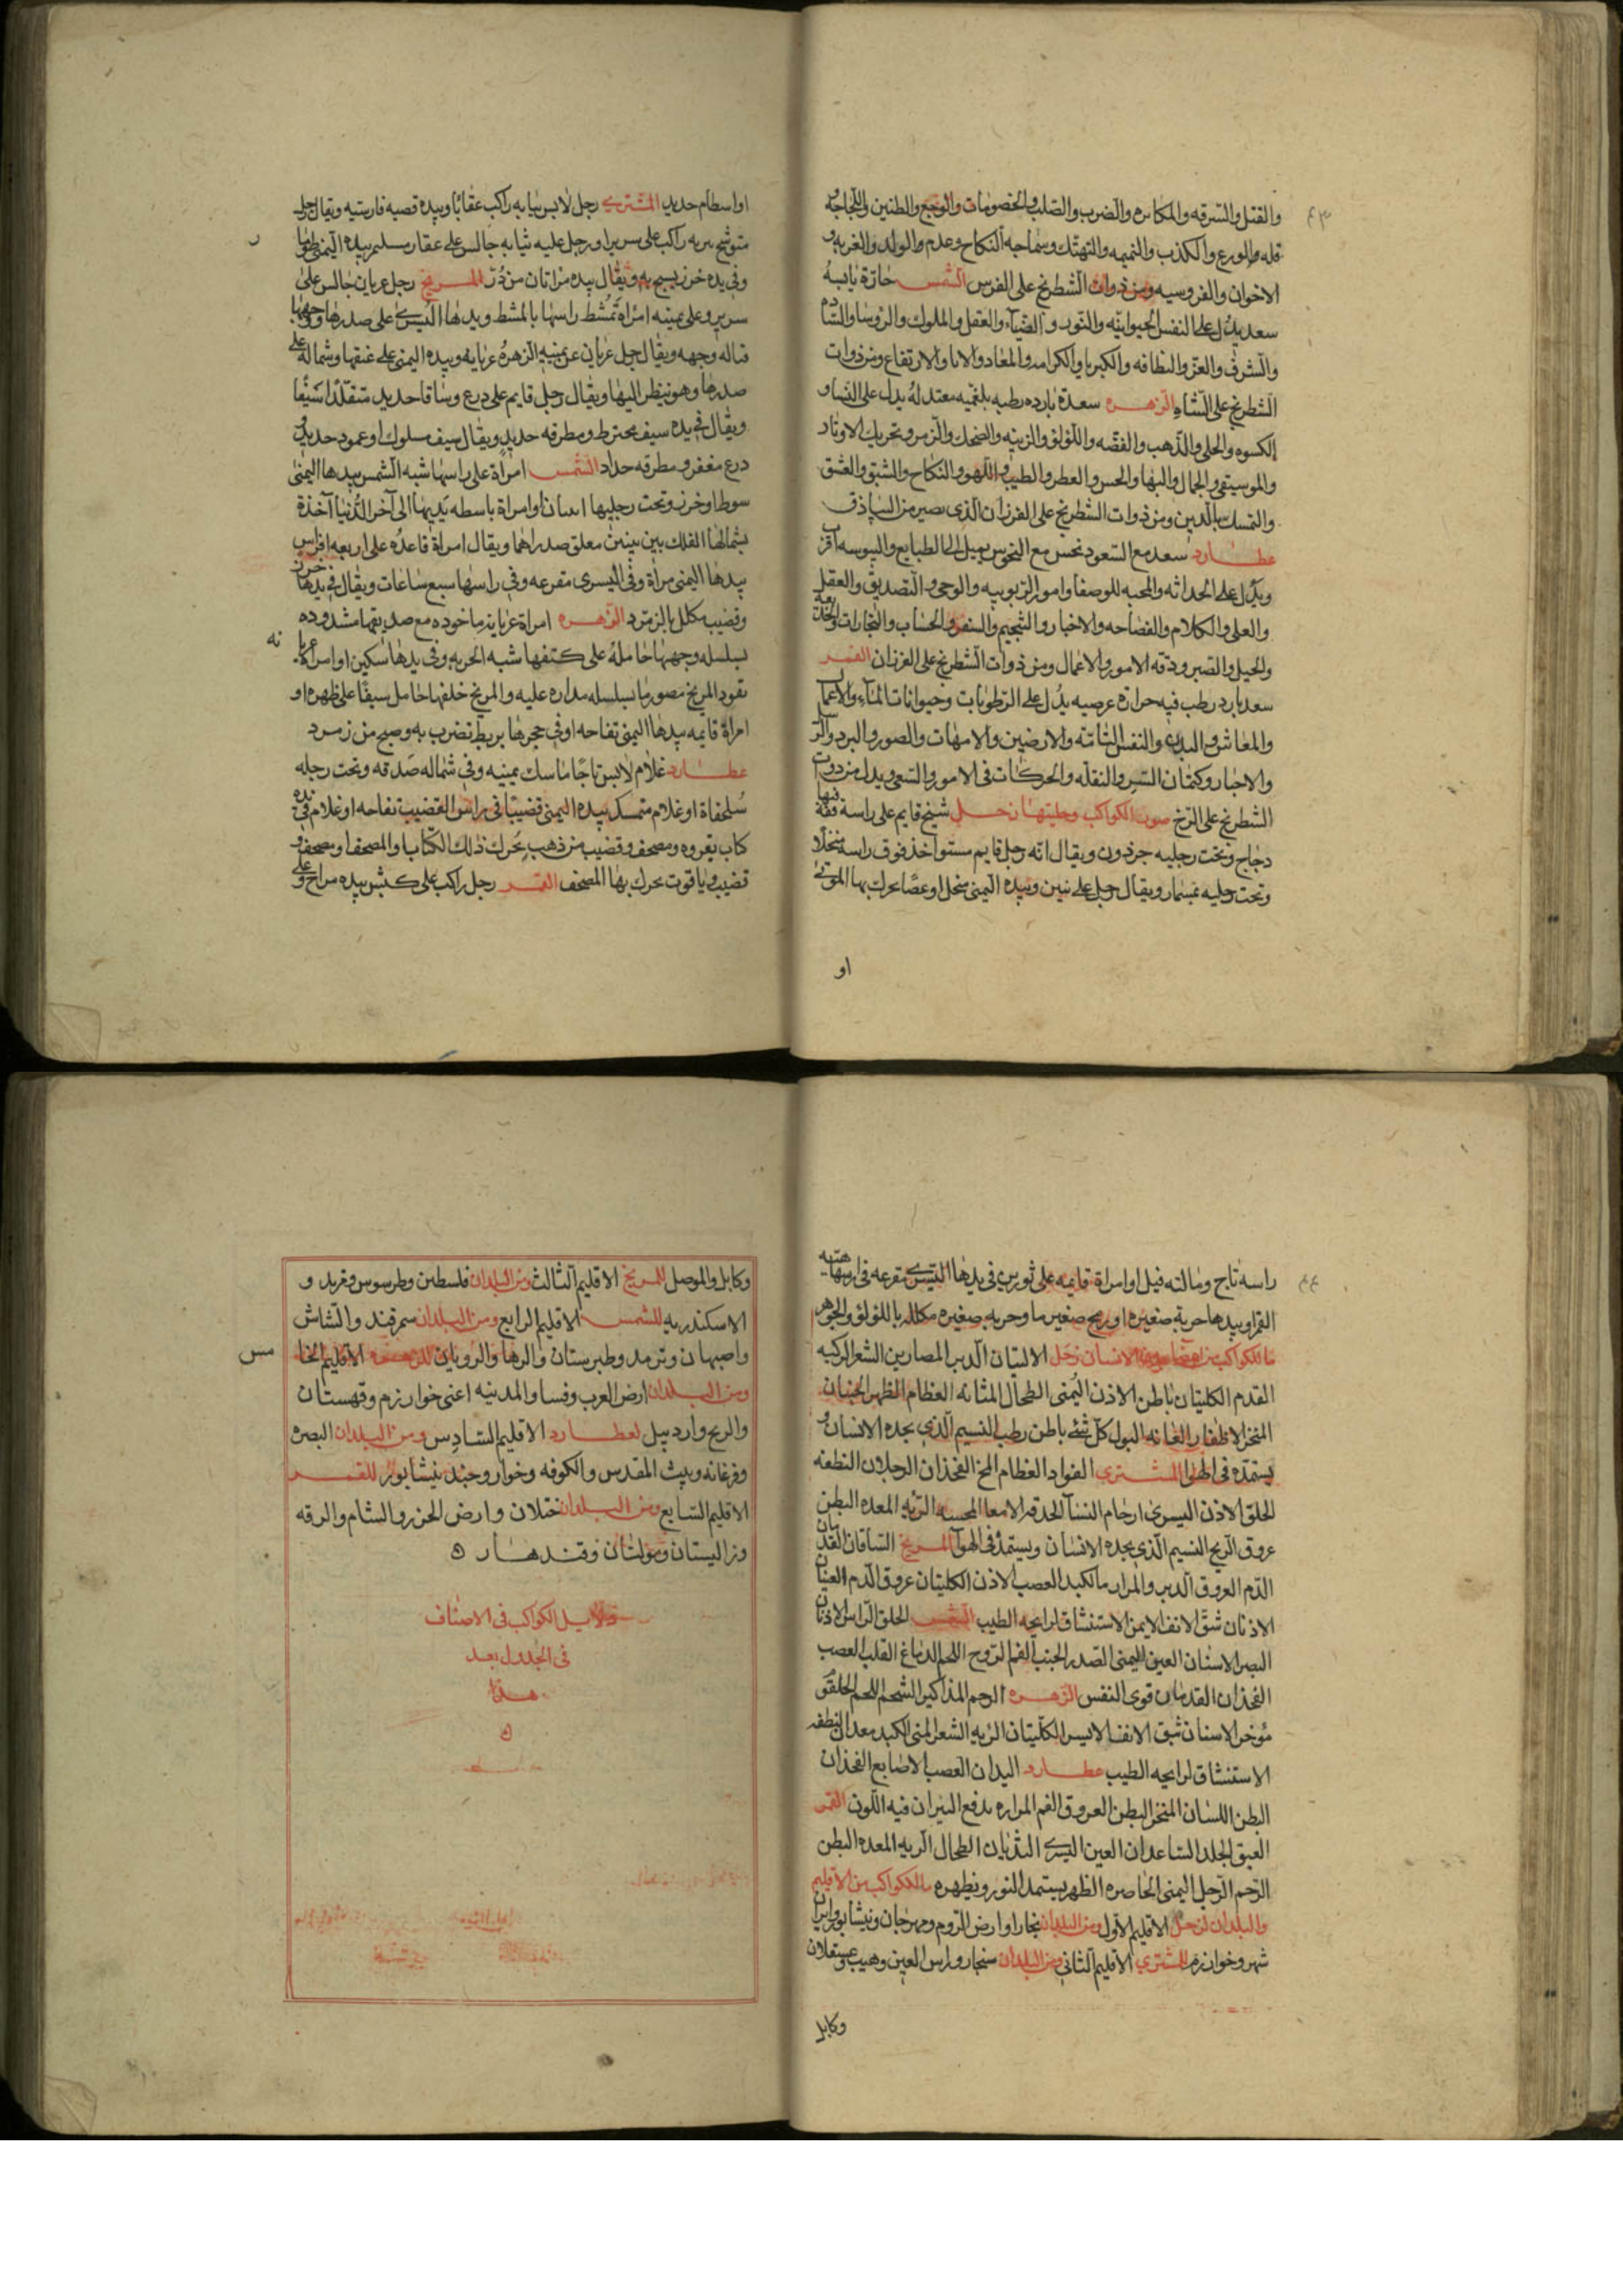 ٤٣
والقتل والسرقه والمكابره والضرب والصلب والخصومات والوجع والطنين واللجاجه
قله والورع والكذب والنميمه والتهتك وسماجه النكاح وعدم والوالد والغربه و
الاخوان والفروسيه ومن ذوات الشطرنج على الفرس الشمس حارة يابسه
سعد يدل على النفس الحيوانيه والنور والضياء والعقل والملوك والروسا والسادم
والشرف والعز والنظافه والكبريا والكرامه والارتفاع ومن ذوات
الشطرنج على الشاه الزهره سعدة بارده رطبه بلغميه معتدله يدل على النسا و
الكسوه والحلى والذهب والفضه واللولو والزينه والضحك والزمر وتحريك الاوتاد
والموسيقى والجمال والبها والحسن والعطر والطيب واللهو والنكاح والشبق والعشق
والتمسك بالدين ومن ذوات الشطرنج على الفرزان الذى يصير من البياذق
عطارد سعد مع السعود نحس مع النحوس يميل الى الطبايع واليبوسه اقرب
ويدل على الحداثه والمحبه للوصفا وامور الربوبيه والوحى والتصديق والعقل
والعلى والكلام والفصاحه والاخبار والتنجيم والسفر والحساب والتجارات
والحيل والصبر ودقه الامور والاعمال ومن ذوات الشطرنج على الفرزان القمر
سعد بارد رطب فيه حرارة عرضيه يدل على الرطوبات وحيوانات الماء والاعمال
والمعاش والبدن والنفس النامته والارضين والامهات والصور والبرد
والاخبار وكتمان السر والنقله والحركات فى الامور والسعى ويدل من ذوات
الشطرنج على الرخ صور الكواكب وحليتها زحل شيخ قايم على راسه قفة فيها
دجاج وتحت رجليه جرذون ويقال انه رجل قايم مستو اخذ فوق راسه منخلا
وتحت رجليه تمسار ويقال رجل على تنين وبيده اليمنى منجل او عصا يحرك بها الموتى
او
او اسطام حديد المشترى رجل لابس ثيابه راكب عقابا وبيده قصبه فارسيه ويقال رجل
متوشح بربه راكب على سرير او رجل عليه ثيابه جالس على عقاب بيده اليمنى
وفى يده خرز يسبح به ويقال بيده مراتان من در المريخ رجل عريان جالس على
سرير وعلى يمينه امراة تمشط راسها بالمشط ويدها اليسرى على صدرها ووجهها
قباله وجهه ويقال رجل عريان عن يمينه الزهرة عريانه ويده اليمنى على عنقها وشماله على
صدرها وهو ينظر اليها ويقال رجل قايم على درع وساقا حديد متقلدا سيفا
ويقال فى يده سيف مخترط ومطرقه حديد ويقال سيف مسلول او عمود حديد
درع مغفر ومطرقه حداد الشمس امراة على راسها شبه الشمس بيدها اليمنى
سوط او خرز وتحت رجليها اسان او امراة باسطه يديها الى آخر الدنيا آخذة
بشمالها الفلك بين معلق صدراهما ويقال امراة قاعدة على اربعه افراس
بيدها اليمنى مراة وفى اليسرى مقرعه وفى راسها سبع ساعات ويقال فى يدها خرز
وقضيب مكلل بالزمرد الزهره امراة عريانه ماخوذه مع صديقها مشدوده
بسلسله وجهها حامله على كتفها شبه الحربه وفى يدها سكين او امراة عريانه
تقود المريخ مصور ما بسلسله مداره عليه والمريخ خلفها حامل سيفا على ظهره او
امراة قايمه بيدها اليمنى تفاحه او فى حجرها بربط تضرب به وصبح من زمرد
عطارد غلام لابس تاجا ماسك بيمينه وفى شماله صدقه وتحت رجله
سلحفاة او غلام متمسك بيده اليمنى قضيبا فى راس القضيب تفاحه او غلام فى يده
كتاب يقروه ومصحف وقضيب من ذهب يحرك ذلك الكتاب او المصحف او مصحف و
قضيب وياقوت يحرك بها المصحف القمر رجل راكب على كبش بيده مراح وعلى
٤٤
راسه تاج ومالته فيل او امراة قايمه على ثورين فى يدها اليسرى مقرعه فى راسها
القمر او بيدها حربة صغيره او رمح صغير ما وحربه صغيره مكلله باللولو والجوهر
ما للكواكب من الانسان زحل الاليتان الدبر المصارين الشعر الركبه
القدم الكليتان باطن الاذن اليمنى الطحال المثانه العظام الظهر الجنبان
المنخر الاظفار العانه البول كل شئ باطن رطب النسيم الذى يجده الانسان و
يستمده فى الهوا المشترى الفواد العظام المخ الفخذان الرجلان النطفه
الحلق الاذن اليسرى ارحام النسا الحدقه الامعا المجسه الريه المعده البطن
عروق الريح النسيم الذى يجده الانسان ويستمده فى الهوا المريخ الساقان القدمان
الدم العروق الدبر والمراره الكبد العصب الاذن الكليتان عروق الدم العينان
الاذنان شق الانف الايمن الاستنشاق لرايحه الطيب الشمس الحلق الراس الاذنان
البصر الاسنان العين اليمنى الصدر الجنب الفم الروح اللحم الدماغ القلب العصب
الفخذان القدمان قوى النفس الزهره الرحم المذاكير الشحم اللحم الحلقوم
مؤخر الاسنان شق الانف الايسر الكليتان الريه الشعر المنى الكبد معدن النطفه
الاستنشاق لرايحه الطيب عطارد اليدان العصب الاصابع الفخذان
البطن اللسان المنخر البطن العروق الفم المراره فيه اللون القمر
العنق الجلد الساعدان العين اليسرى الثديان الطحال الريه المعده البطن
الرحم الرجل اليمنى الخاصره الظهر يستمد النور ويظهره ما للكواكب من الاقليم
والبلدان لزحل الاقليم الاول ومن البلدان بخارا وارض الروم ومهرجان ونيشابور وايران
شهر وخوارزم للمشترى الاقليم الثانى ومن البلدان سنجار وراس العين وهيب وعسقلان
وكابل
وكابل والموصل للمريخ الاقليم الثالث ومن البلدان فلسطين وطرسوس وفريد و
الاسكندريه للشمس الاقليم الرابع ومن البلدان سمرقند والشاش
واصبهان وترمد وطبرستان والرها والرويان للزهره الاقليم الخا
مس
ومن البلدان ارض العرب وفسا والمدينه اعنى خوارزم وقهستان
والريح واردبيل لعطارد الاقليم السادس ومن البلدان البصره
وفرغانه وبيت المقدس والكوفه وخوار وجند نيشابور للقمر
الاقليم السابع ومن البلدان ختلان وارض الخزر والشام والرقه
وزاليستان ومولتان وقندهار ه
دلايل الكواكب فى الاصناف
فى الجدول بعد
هذا
ه